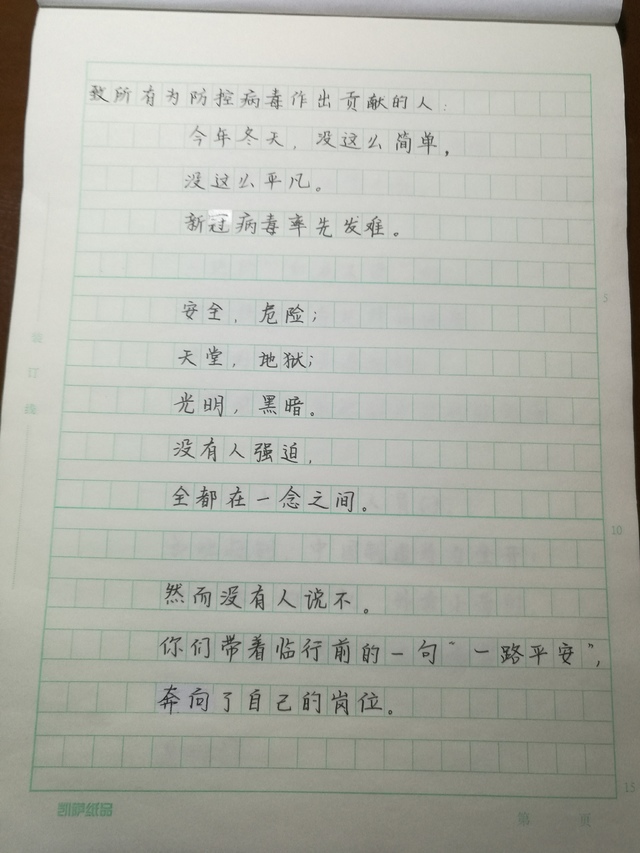 致所有为防控病毒作出贡献的人：
今年冬天，没这么简单，
没这么平凡。
新冠病毒率先发难。
安全，危险；
天堂，地狱；
光明，黑暗。
没有人强迫，
全都在一念之间。
然而没有人说不。
你们带着临行前的一句“一路平安”，
奔向了自己的岗位。
装
订
线
5
10
15
第 页